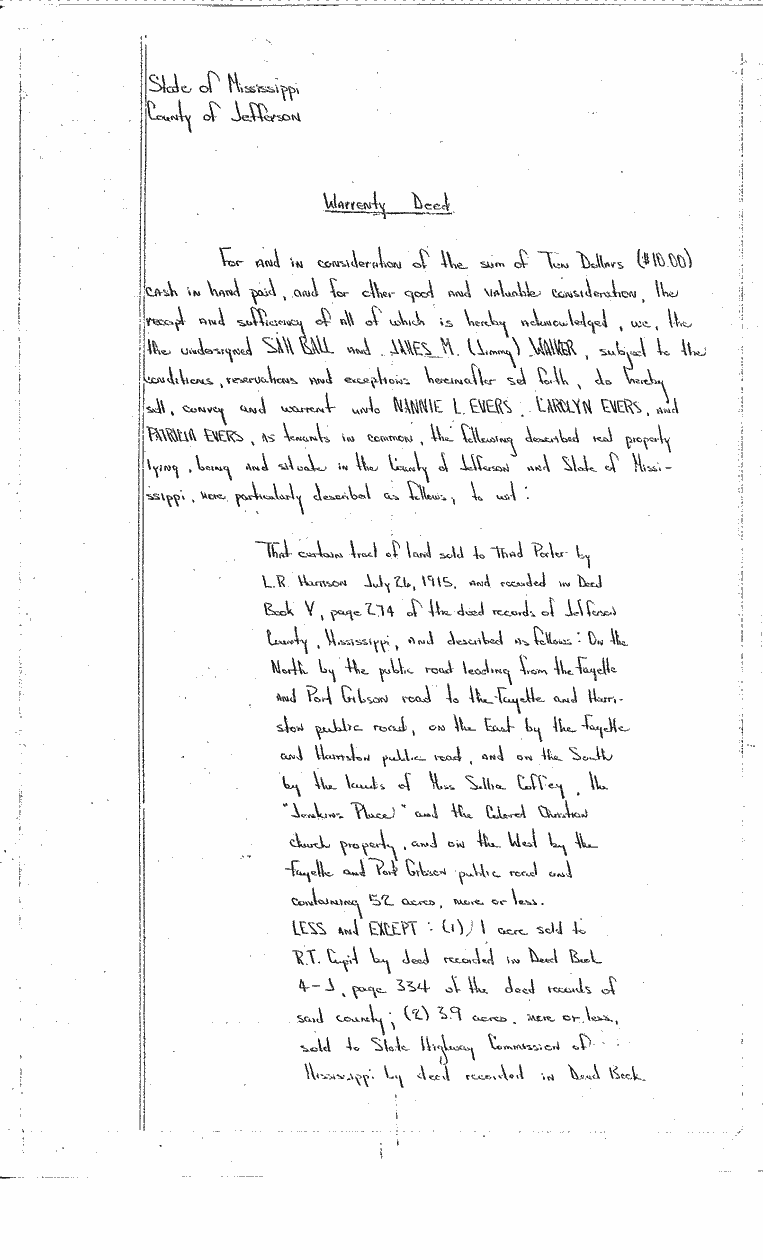 State of Mississippi
County of Jefferson
Warrenty Deed
For and in consideration of the sum of Ten Dollars ($10.00)
cash in hand paid, and for other good and valuable consideration, the
receipt and sufficiency of all of which is hereby acknowledged, we, the
the undersigned SAM BALL and JAMES M. (Jimmy) WALKER, subject to the
conditions, reservations and exceptions hereinafter set forth, do hereby
sell, convey and warrent unto NANNIE L. EVERS, CAROLYN EVERS, and
PATRICIA EVERS, as tenants in common, the following described real property
lying, being and situate in the County of Jefferson and State of Missi-
ssippi, more particularly described as follows, to wit:
That certain tract of land sold to Thad Porter by
L.R. Harrison July 26, 1915, and recorded in Deed
Book V, page 274 of the deed records of Jefferson
County, Mississippi, and described as follows: On the
North by the public road leading from the Fayette
and Port Gibson road to the Fayette and Harri-
ston public road, on the East by the Fayette
and Harriston public road, and on the South
by the lands of Miss Coffey, the
"Jenkins Place" and the Colored Christian
church property, and on the West by the
Fayette and Port Gibson public road and
containing 52 acres, more or less.
LESS and EXCEPT: (1) 1 acre sold to
R.T. Cupit by deed recorded in Deed Book
4-J, page 334 of the deed records of
said county; (2) 3.9 acres, more or less,
sold to State Highway Commission of
Mississippi by deed recorded in Deed Book